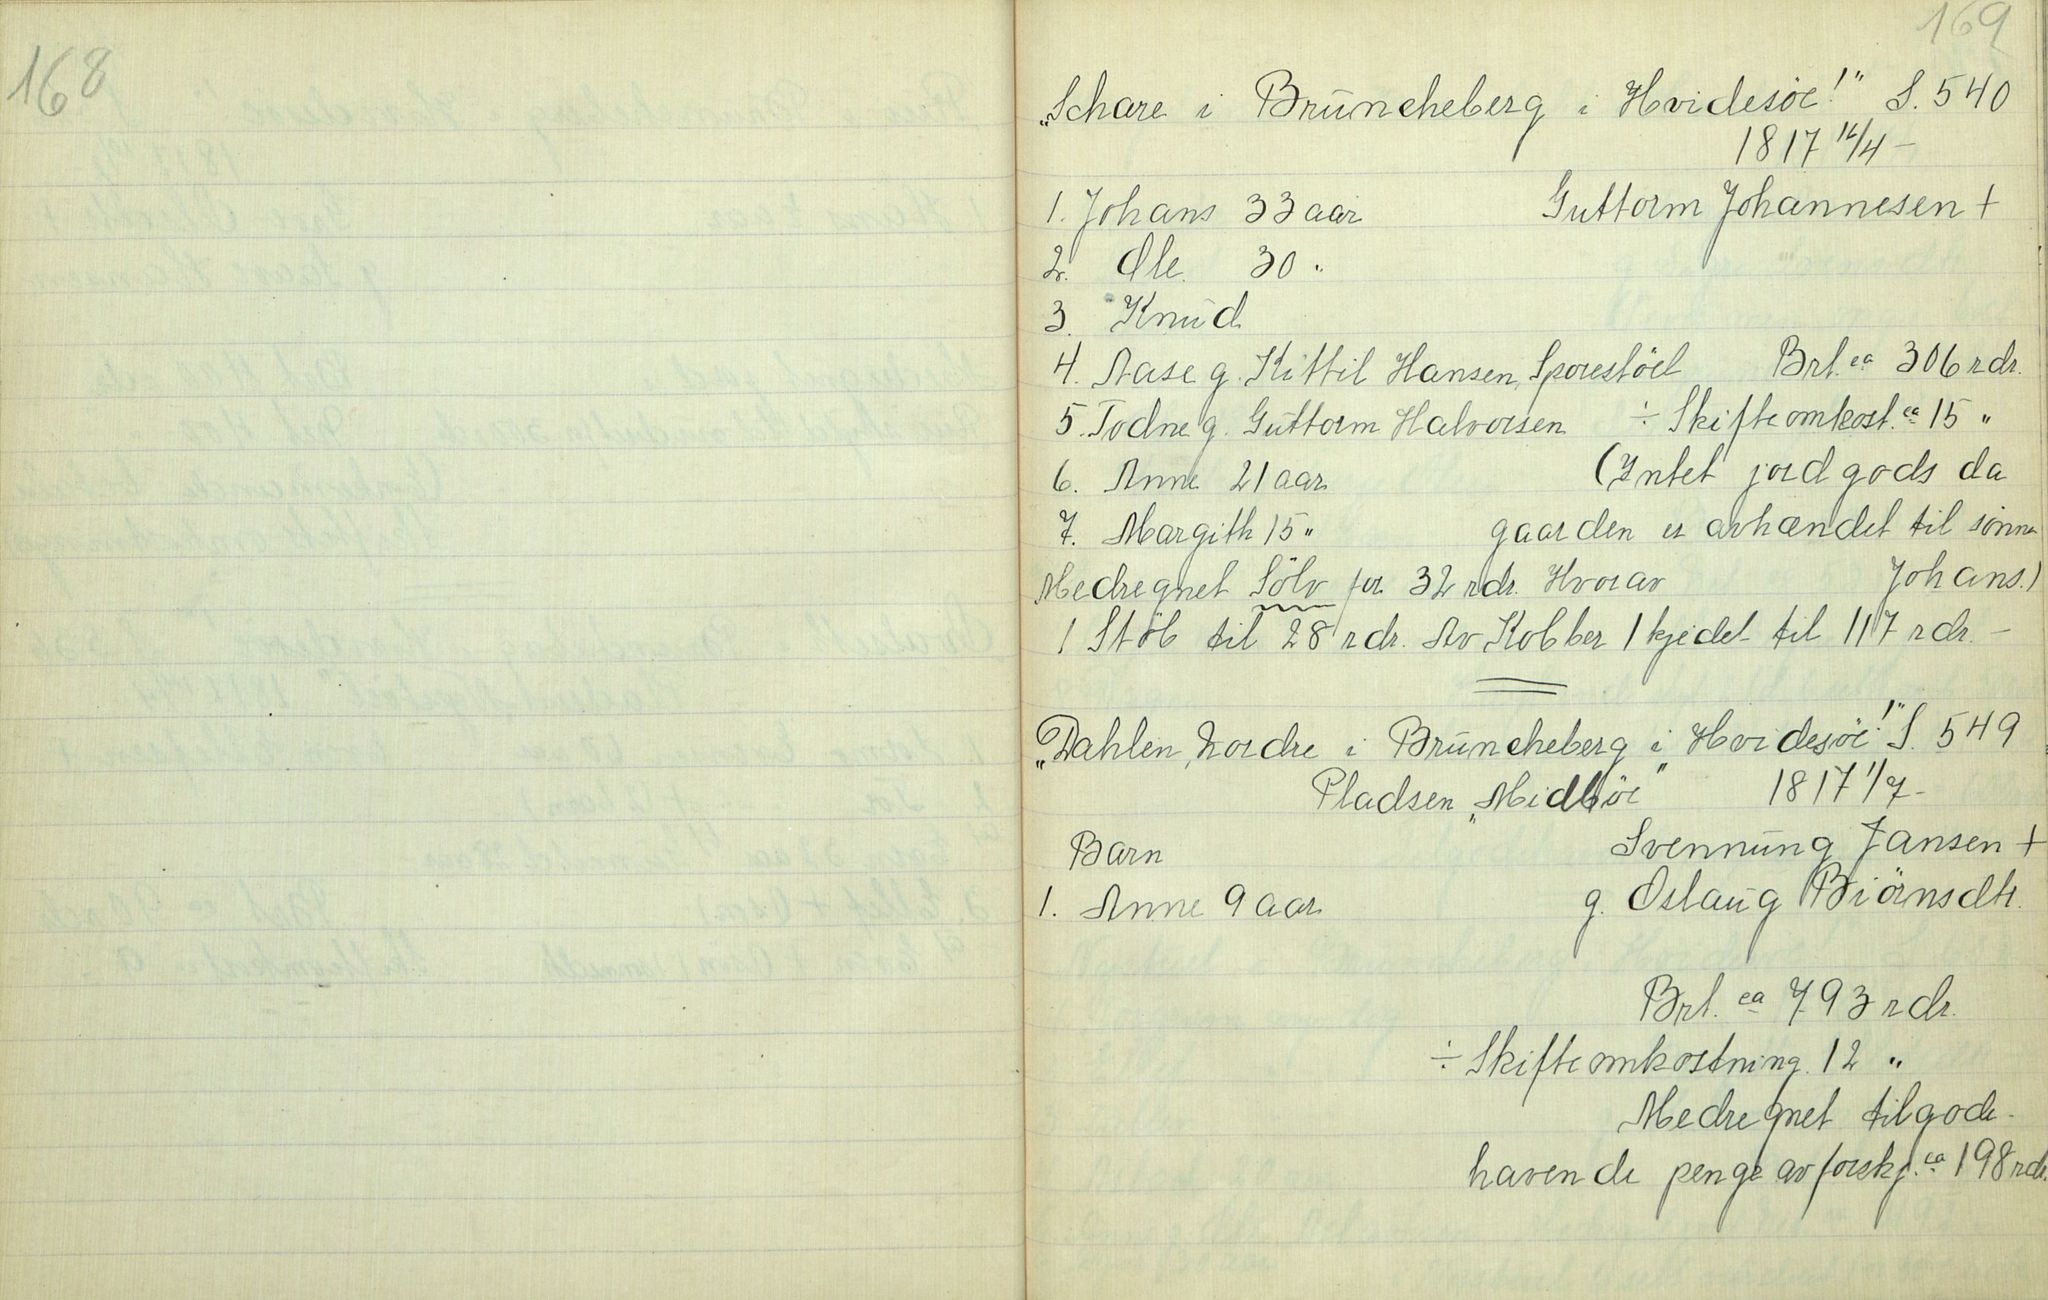 168
169
„Schare i Brüncheberg i Hvidesöe!“ S. 540
1817 16/4 –
1. Johans 33 aar Guttorm Johannesen +
2. Ole 30 "
3. Knüd
4. Aase g. Kittil Hansen, Sporestöel Brt. ca 306 rdr.
5. Todne g. Güttorm Halvorsen ÷ Skifteomkost. ca 15 "
6. Anne 21 aar (Intet jordgods da
7. Margith 15 " gaarden er avhændet til sönnen
Medregnet Sölv for 32 rdr. Hvorav Johans.)
1 Stöb til 28 rdr. Av Kobber 1 kjedel til 117 rdr. –
„Dahlen, Nordre i Brüncheberg i Hvidesöe!“ S. 549
Pladsen „Midböe“ 1817 1/7 –
Barn Svennüng Jansen +
1. Anne 9 aar g. Oslaüg Biörnsdtr.
Brt. ca 793 rdr.
÷ Skifteomkostning. 12 "
Medregnet tilgode-
havende penge av forskj. ca 198 rdr.